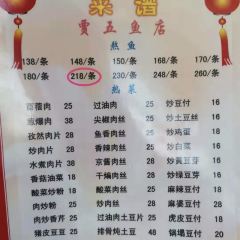 菜谱
贾五鱼店
熬鱼
138/条 148/条 150/条 168/条 170/条
180/条 218/条 230/条 248/条 260/条
热菜
25 过油肉 25 炒豆付 16
葱爆肉 25 尖椒肉丝 25 炒土豆丝 16
孜然肉片 30 鱼香肉丝 25 炒鸡蛋 18
炒肉片 25 香辣肉丝 25 炒白菜 16
水煮肉片 30 京酱肉丝 28 炒黄豆芽 16
香菇油菜 18 干煸肉丝 28 炒绿豆芽 16
酸菜炒粉 18 酸菜肉丝 25 麻辣豆付 18
肉炒粉 20 蒜苔肉丝 25 麻婆豆付 18
肉炒香芹 25 过油肉土豆片 25 虎皮豆付 18
猪皮豆豆 25 排骨炖土豆 48 锅塌豆付 20